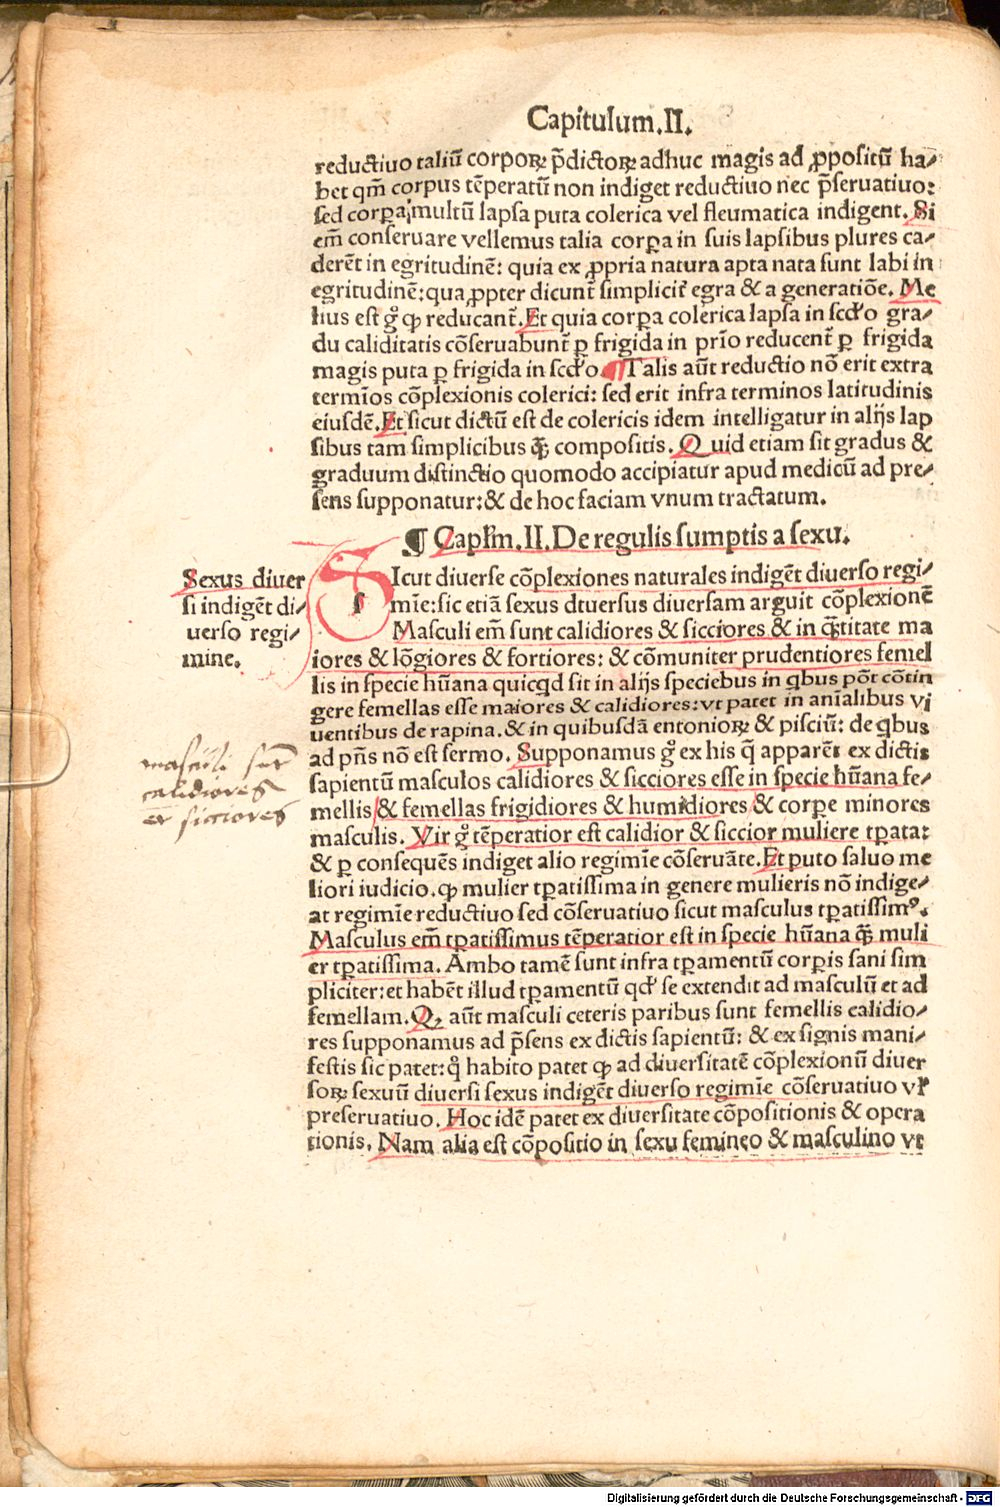 Capitulum.II.
reductiuo taliū corpoꝝ p̄dictoꝝ adhuc magis ad ꝓpositū ha⸗
bet qm̄ corpus tēperatū non indiget reductiuo nec p̄seruatiuo:
sed corꝑa multū lapsa puta colerica vel fleumatica indigent. Si
em̄ conseruare vellemus talia corꝑa in suis lapsibus plures ca⸗
derēt in egritudinē: quia ex ꝓpria natura apta nata sunt labi in
egritudinē: qua ꝓpter dicunt᷑ simplicit᷑ egra & a generatiōe. Me
lius est gͦ ꝙ reducant᷑. Et quia corꝑa colerica lapsa in scd'o gra⸗
du caliditatis cōseruabunt᷑ ꝑ frigida in prīo reducent᷑ ꝑ frigida
magis puta ꝑ frigida in scd'o. ¶ Talis aūt reductio nō erit extra
termīos cōplexionis colerici: sed erit infra terminos latitudinis
eiusdē. Et sicut dictū est de colericis idem intelligatur in alijs lap
sibus tam simplicibus ꝙ̄ compositis. Quid etiam sit gradus &
graduum distinctio quomodo accipiatur apud medicū ad pre⸗
sens supponatur: & de hoc faciam vnum tractatum.
¶ Capl'm. II. De regulis sumptis a sexu.
Sexus diuer
si indigēt di⸗
uerso regi⸗
mine.
SIcut diuerse cōplexiones naturales indigēt diuerso regi⸗
mīe: sic etiā sexus dtuersus diuersam arguit cōplexionē
Masculi em̄ sunt calidiores & sicciores & in q̄titate ma
iores & lōgiores & fortiores: & cōmuniter prudentiores femel
lis in specie hūana quicqd sit in alijs speciebus in qbus pōt cōtin
gere femellas esse maiores & calidiores: vt patet in anīalibus vi
uentibus de rapina. & in quibusdā entonioꝝ & pisciū: de qbus
ad pn̄s nō est sermo. Supponamus gͦ ex his q̄ apparēt ex dictis
sapientū masculos calidiores & sicciores esse in specie hūana fe⸗
mellis & femellas frigidiores & humidiores & corꝑe minores
masculis. Vir gͦ tēperatior est calidior & siccior muliere tꝑata:
& ꝑ consequēs indiget alio regimīe cōseruāte. Et puto saluo me
liori iudicio. ꝙ mulier tꝑatissima in genere mulieris nō indige⸗
at regimīe reductiuo sed cōseruatiuo sicut masculus tꝑatissimꝰ.
Masculus em̄ tꝑatissimus tēperatior est in specie hūana ꝙ̄ muli
er tꝑatissima. Ambo tamē sunt infra tꝑamentū corꝑis sani sim
pliciter: et habēt illud tꝑamentū qd' se extendit ad masculū et ad
femellam. Qꝫ aūt masculi ceteris paribus sunt femellis calidio⸗
res supponamus ad p̄sens ex dictis sapientū: & ex signis mani⸗
festis sic patet: qͦ habito patet ꝙ ad diuersitatē cōplexionū diuer
soꝝ sexuū diuersi sexus indigēt diuerso regimīe cōseruatiuo vl'
preseruatiuo. Hoc idē patet ex diuersitate cōpositionis & opera
tionis. Nam alia est cōpositio in sexu femineo & masculino vt
masculi sūt
calidiores
et sicciores
Digitalisierung gefördert durch die Deutsche Forschungsgemeinschaft - DFG